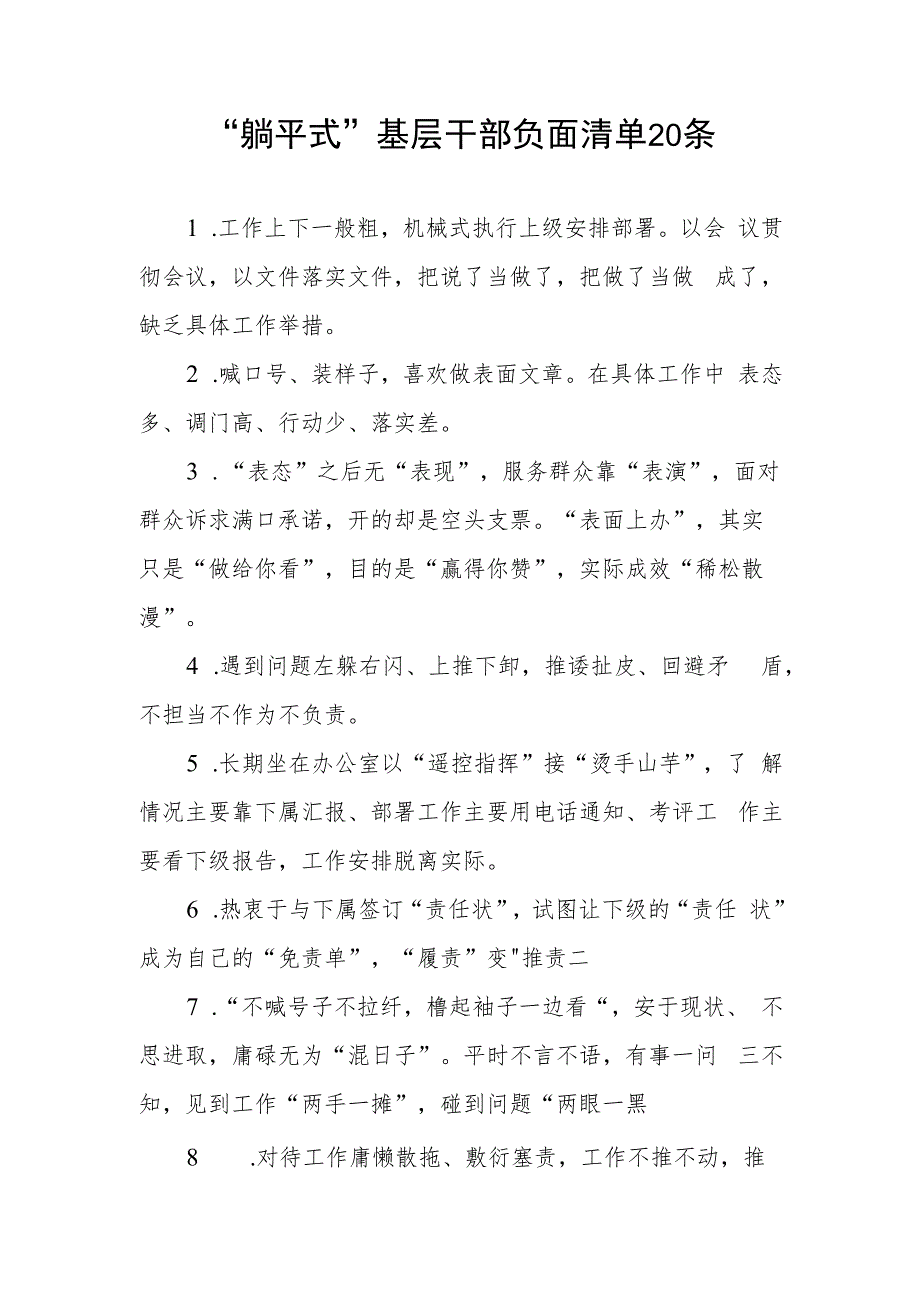 “躺平式”基层干部负面清单20条
1 .工作上下一般粗，机械式执行上级安排部署。以会 议贯
彻会议，以文件落实文件，把说了当做了，把做了当做 成了，
缺乏具体工作举措。
2 .喊口号、装样子，喜欢做表面文章。在具体工作中 表态
多、调门高、行动少、落实差。
3 .“表态”之后无“表现”，服务群众靠“表演”，面对
群众诉求满口承诺，开的却是空头支票。“表面上办”，其实
只是“做给你看”，目的是“赢得你赞”，实际成效“稀松散
漫”。
4 .遇到问题左躲右闪、上推下卸，推诿扯皮、回避矛 盾，
不担当不作为不负责。
5 .长期坐在办公室以“遥控指挥”接“烫手山芋”，了 解
情况主要靠下属汇报、部署工作主要用电话通知、考评工 作主
要看下级报告，工作安排脱离实际。
6 .热衷于与下属签订“责任状”，试图让下级的“责任 状”
成为自己的“免责单”，“履责”变"推责二
7 .“不喊号子不拉纤，橹起袖子一边看“，安于现状、 不
思进取，庸碌无为“混日子”。平时不言不语，有事一问 三不
知，见到工作“两手一摊”，碰到问题“两眼一黑
8 .对待工作庸懒散拖、敷衍塞责，工作不推不动，推